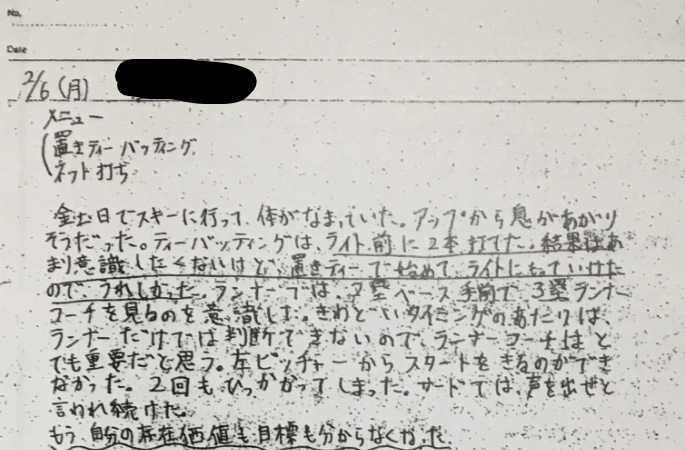 No.
Date
2/6 (月)
メニュー
置きティーバッティング
ネット打ち
金土日でスキーに行って、体がなまっていた。アップから息があがり
そうだった。ティーバッティングは、ライト前に2本打てた。結果はあ
まり意識したくないけど、置きティーで始めて、ライトにもっていけた
ので、うれしかった。ランナーでは、2塁ベース手前で3塁ランナー
コーチを見るのを意識した。きわどいタイミングのあたりは、
ランナーだけでは判断できないので、ランナーコーチはと
ても重要だと思う。左ピッチャーからスタートをきるのができ
なかった。2回もひっかかってしまった。サードでは、声を出せと
言われ続けた。
もう、自分の存在価値も目標も分からなくなった。